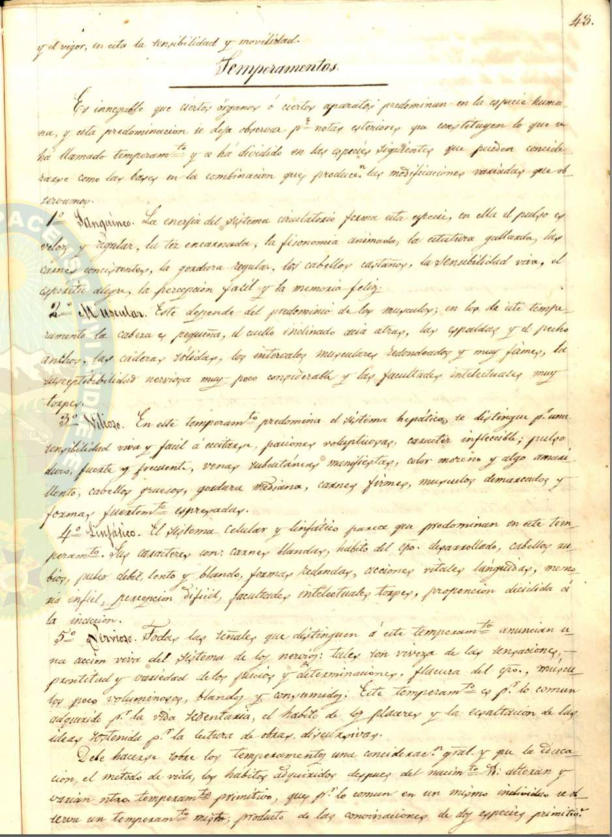 43.
y el vigor, en esta la sensibilidad y movilidad.
Temperamentos.
Es innegable que ciertos órganos ó ciertos aparatos predominan en la especie huma-
na, y esta predominacion se deja observar p.r notas esteriores que constituyen lo que se
há llamado temperam.to y se há dividido en las especies siguientes que pueden conside-
rarse como las bases en la combinacion que producen las modificaciones variadas que ob-
servamos.
1.o Sanguineo. La energia del sistema circulatorio forma esta especie, en ella el pulso es
veloz y regular, la tez encarnada, la fisonomia animada, la estatura gallarda, las
carnes consistentes, la gordura regular, los cabellos castaños, la sensibilidad viva, el
espiritu alegre, la percepcion facil y la memoria feliz.
2.o Muscular. Este depende del predominio de los musculos; en los de este tempe-
ramento la cabeza es pequeña, el cuello inclinado acia atras, las espaldas y el pecho
anchos, las caderas sólidas, los intervalos musculares redondeados y muy firmes, la
susceptibilidad nerviosa muy poco considerable y las facultades intelectuales muy
torpes.
3.o Vilioso. En este temperam.to predomina el sistema hepático, se distingue p.r una
sensibilidad viva y facil á excitarse, pasiones voluptuosas, caracter inflecsible; pulso
duro, fuerte y frecuente, venas subcutáneas manifiestas, color moreno y algo amari-
llento, cabellos gruesos, gordura mediana, carnes firmes, musculos demarcados y
formas fuertem.te espresadas.
4.o Linfático. El sistema celular y linfático parece que predominan en este tem-
peram.to. Sus caractéres son: carnes blandas, hábito del cpo. desarrollado, cabellos ru-
bios, pulso debil, lento y blando, formas redondas, acciones vitales languidas, memo-
ria infiel, percepcion dificil, facultades intelectuales torpes, propencion decidida á
la inaccion.
5.o Nervioso. Todas las señales que distinguen á este temperam.to anuncian u-
na accion viva del sistema de los nervios: tales son viveza de las sensaciones,
prontitud y variedad de los juicios y determinaciones, flacura del cpo., muscu-
los poco voluminosos, blandos y consumidos. Este temperam.to es p.r lo comun
adquirido p.r la vida sedentaria, el hábito de los placeres y la ecsaltacion de las
ideas sostenida p.r la lectura de obras discursivas.
Debe hacerse sobre los temperamentos una considerac.n gral. y que la educa-
cion, el metodo de vida, los hábitos adquiridos despues del nacim.to alteran y
varian ntro. temperam.to primitivo, que p.r lo comun en un mismo individuo se ob-
serva un temperam.to misto, producto de las convinaciones de dos especies primitiv.s
PACENS